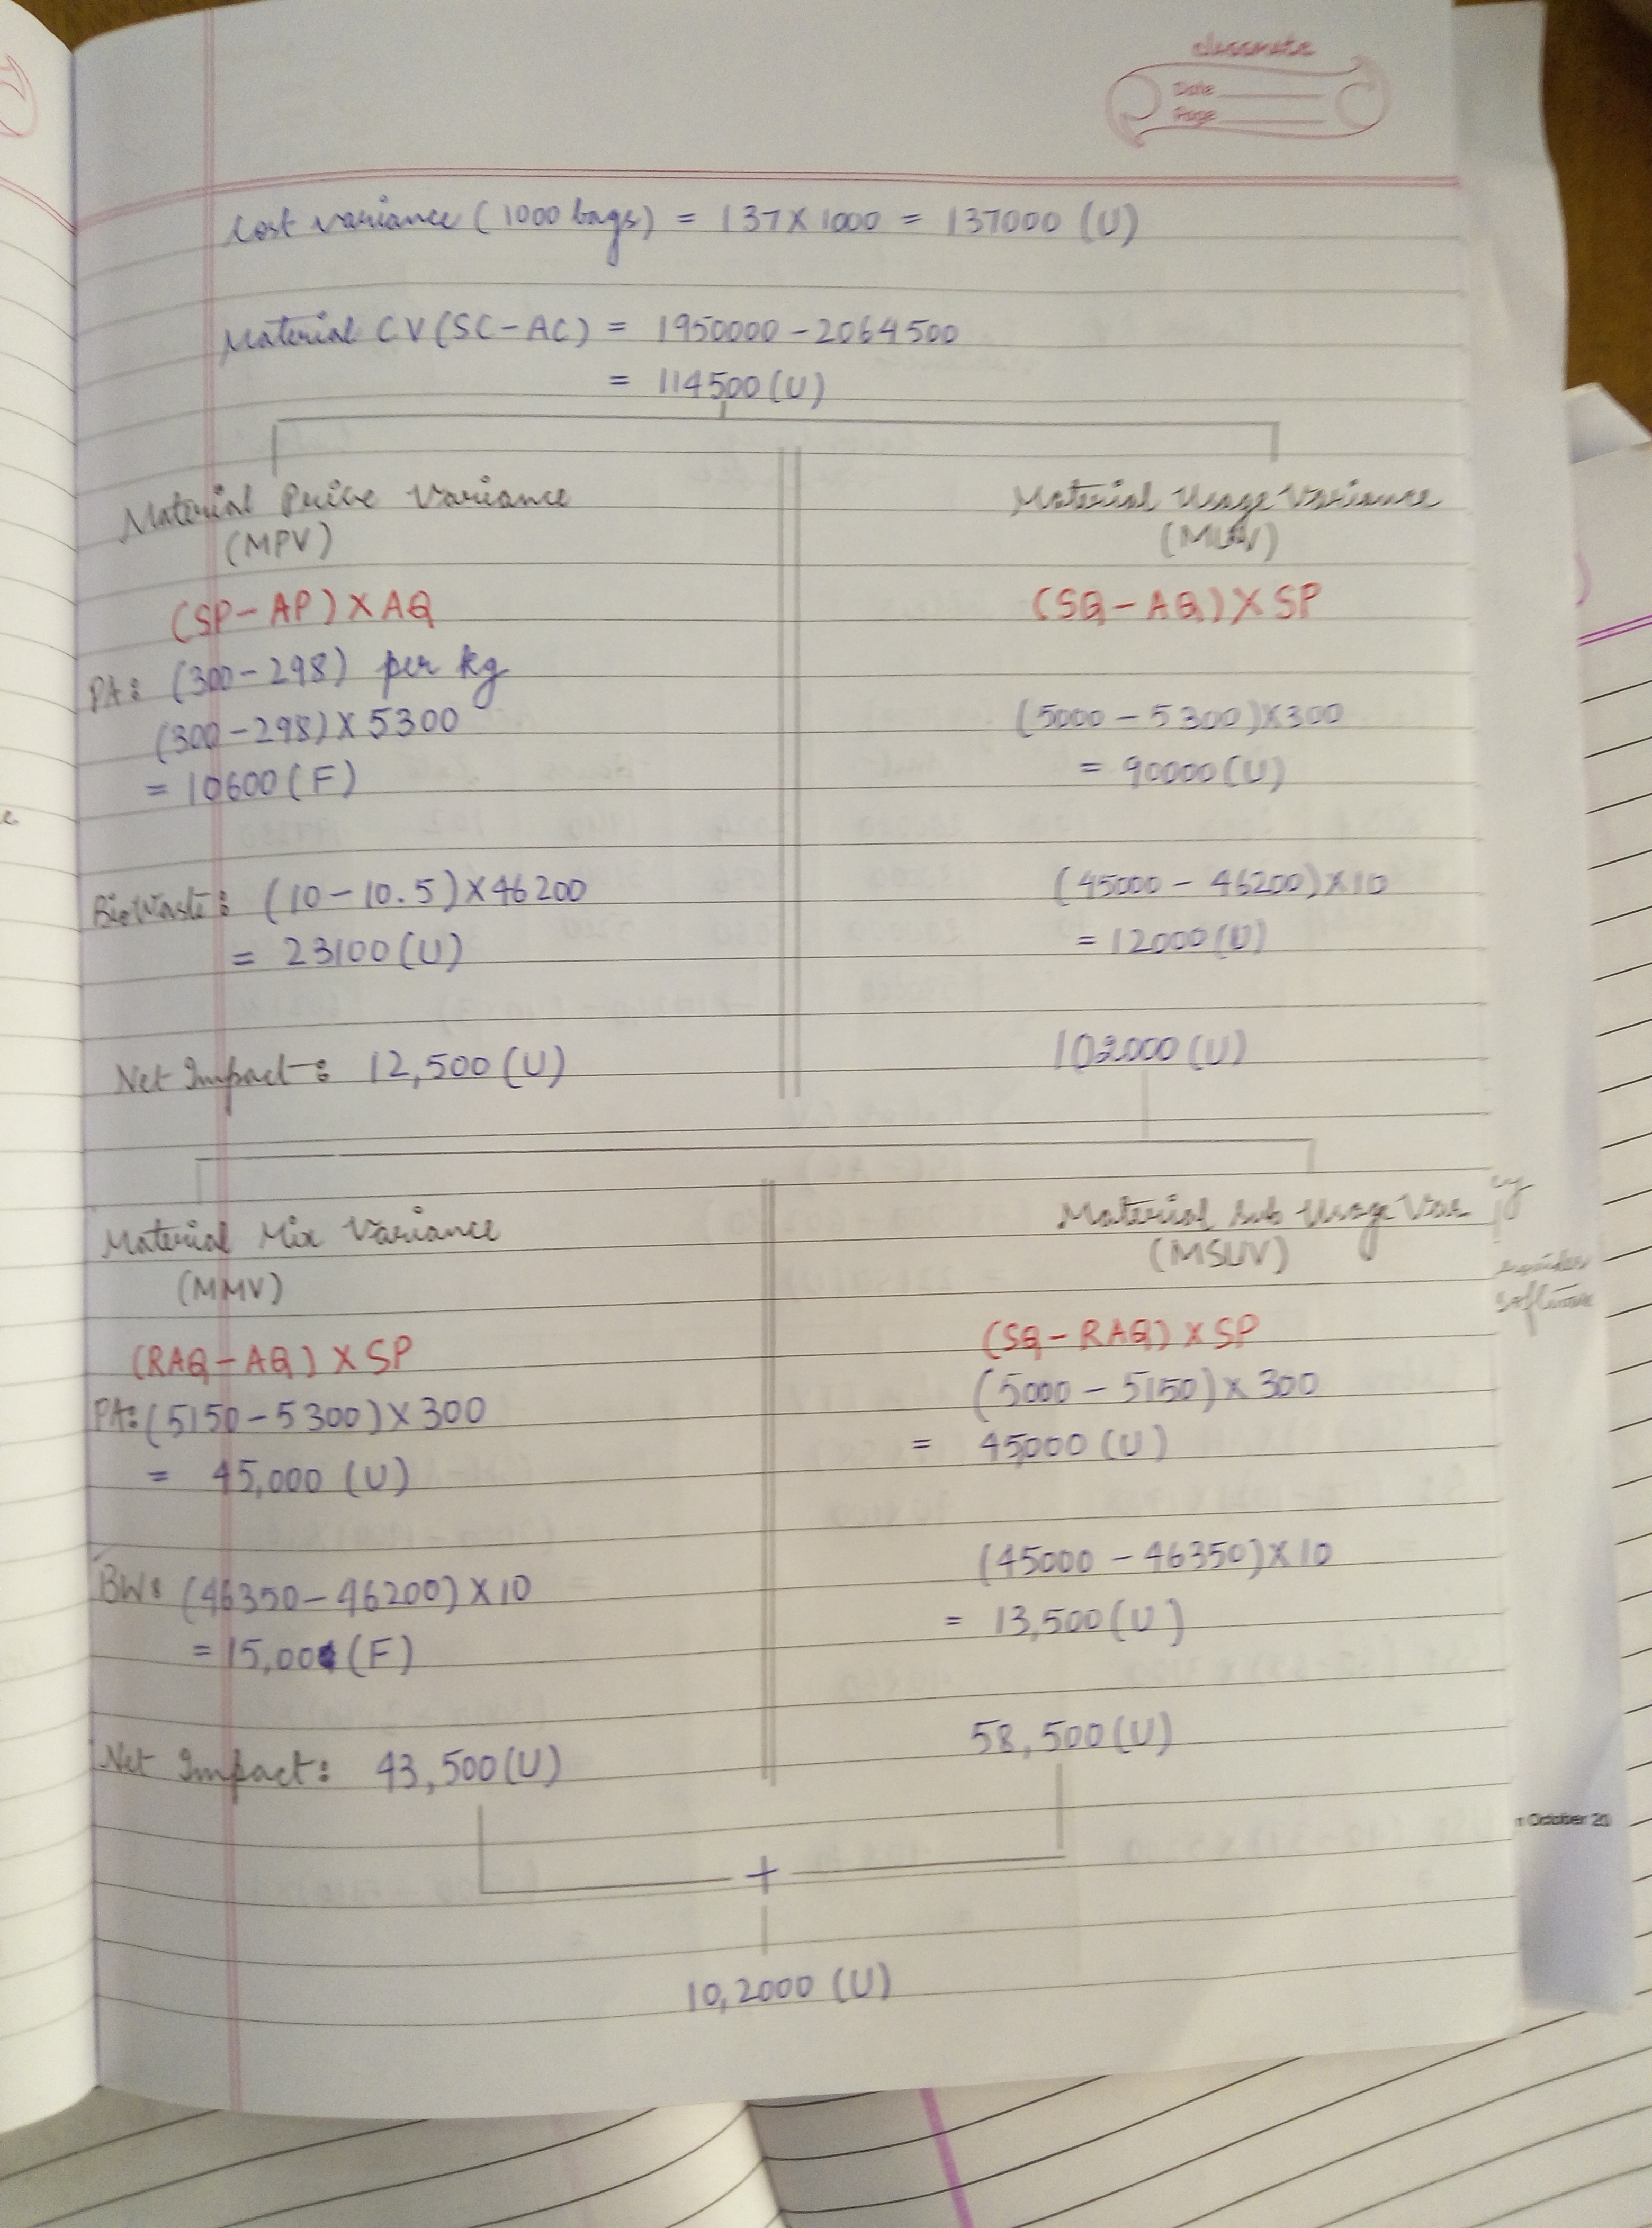 classmate
Date
Page
Cost variance (1000 bags) = 137 X 1000 = 137000 (U)
Material CV (SC - AC) = 1950000 - 2064500
= 114500 (U)
Material Price Variance
(MPV)
(SP - AP) X AQ
PA: (300 - 298) per kg
(300 - 298) X 5300
= 10600 (F)
BioWaste: (10 - 10.5) X 46200
= 23100 (U)
Net Impact: 12,500 (U)
Material Usage Variance
(MUV)
(SQ - AQ) X SP
(5000 - 5300) X 300
= 90000 (U)
(45000 - 46200) X 10
= 12000 (U)
102000 (U)
Material Mix Variance
(MMV)
(RAQ - AQ) X SP
PA: (5150 - 5300) X 300
= 45,000 (U)
BW: (46350 - 46200) X 10
= 15,00 (F)
Net Impact: 43,500 (U)
Material Sub Usage Var
(MSUV)
(SQ - RAQ) X SP
(5000 - 5150) X 300
= 45,000 (U)
(45000 - 46350) X 10
= 13,500 (U)
58,500 (U)
+
10,2000 (U)
software
October 20